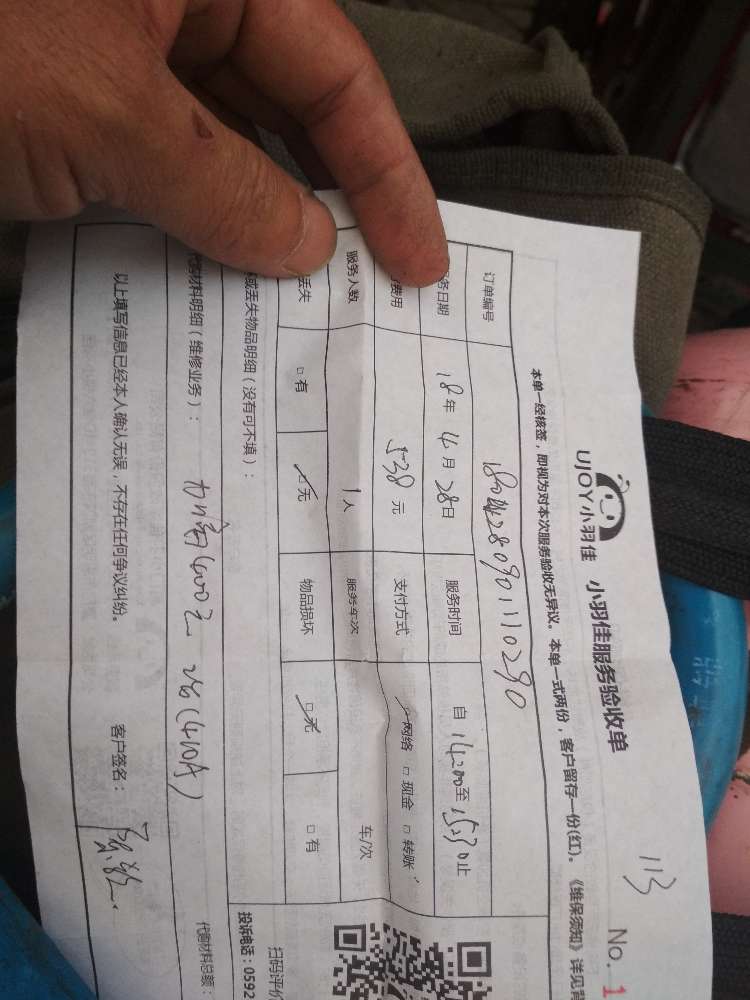 113
No. 1
UJOY小羽佳 小羽佳服务验收单
本单一经核签，即视为对本次服务验收无异议。本单一式两份，客户留存一份(红)。《维保须知》详见背
订单编号
务日期 18年 4月 28日 服务时间 自 14:00至 15:30止
费用 538元 支付方式 ☑网络 □现金 □转账
服务人数 1人 服务车次 车/次
丢失 □有 ☑无 物品损坏 ☑无 □有
或丢失物品明细（没有可不填）：
代购材料明细（维修业务）：
代购材料总额：
以上填写信息已经本人确认无误，不存在任何争议纠纷。 客户签名：
扫码评价
投诉电话：0592